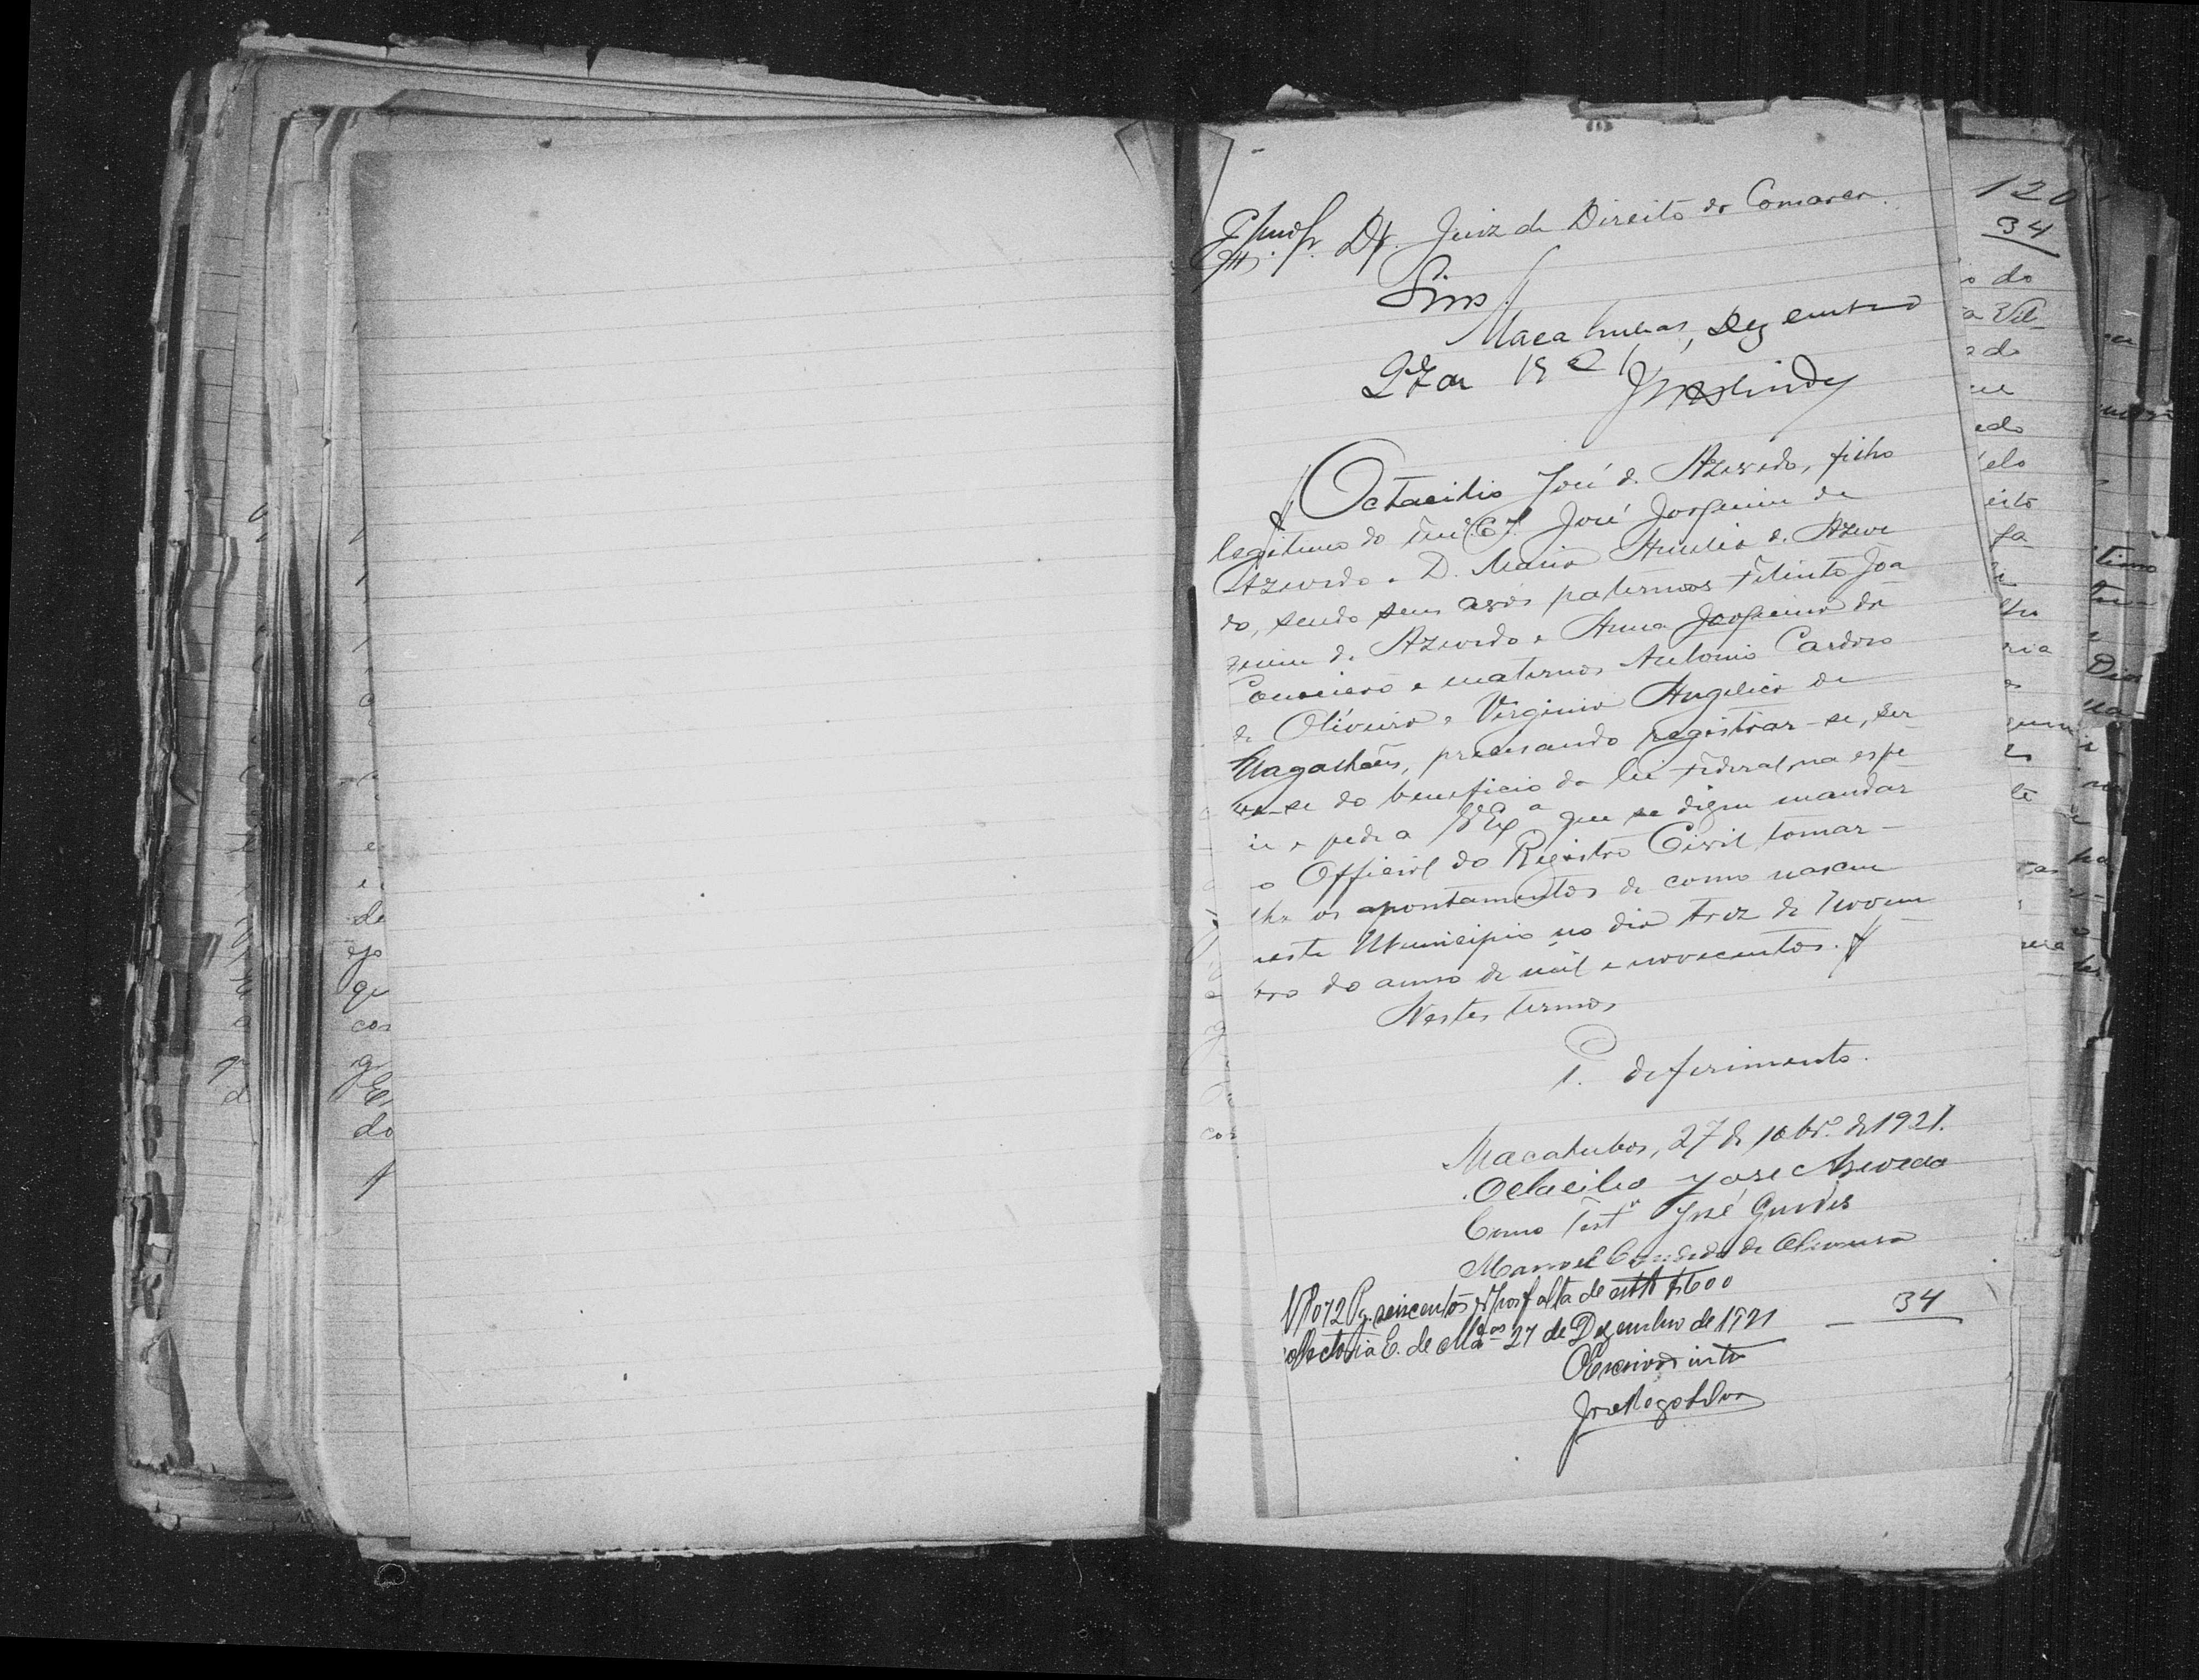 Dr. Juiz de Direito da Comarca.
Sim.
Macahubas, Dezembro
27 de 1921
Octacilio José de Azevedo, filho
legitimo do José Joaquim de
Azevedo e D. Maria Amelia de Azeve
do, sendo seus avós paternos Felinto Joa
quim de Azevedo e Anna Joaquina da
Conceição e maternos Antonio Cardoso
de Oliveira e Virginia Angelica de
Magalhães, precisando registrar-se, ser
ve-se do beneficio da lei Federal, na espe
cie e pede a V. Exª que se digne mandar
o Official do Registro Civil tomar-
lhe os apontamentos de como nasceu
neste Municipio no dia trez de Novem
bro do anno de mil e novecentos.
Nestes termos
P. deferimento.
Macahubas, 27 de 10brº de 1921.
Octacilio José Azevedo
Como testª José Guedes
Manoel de Oliveira
Nº 072 Pg. seiscentos rs por falta de $600
Collectoria E. de 27 de Dezembro de 1921
34
O Escrivão intº
120
34